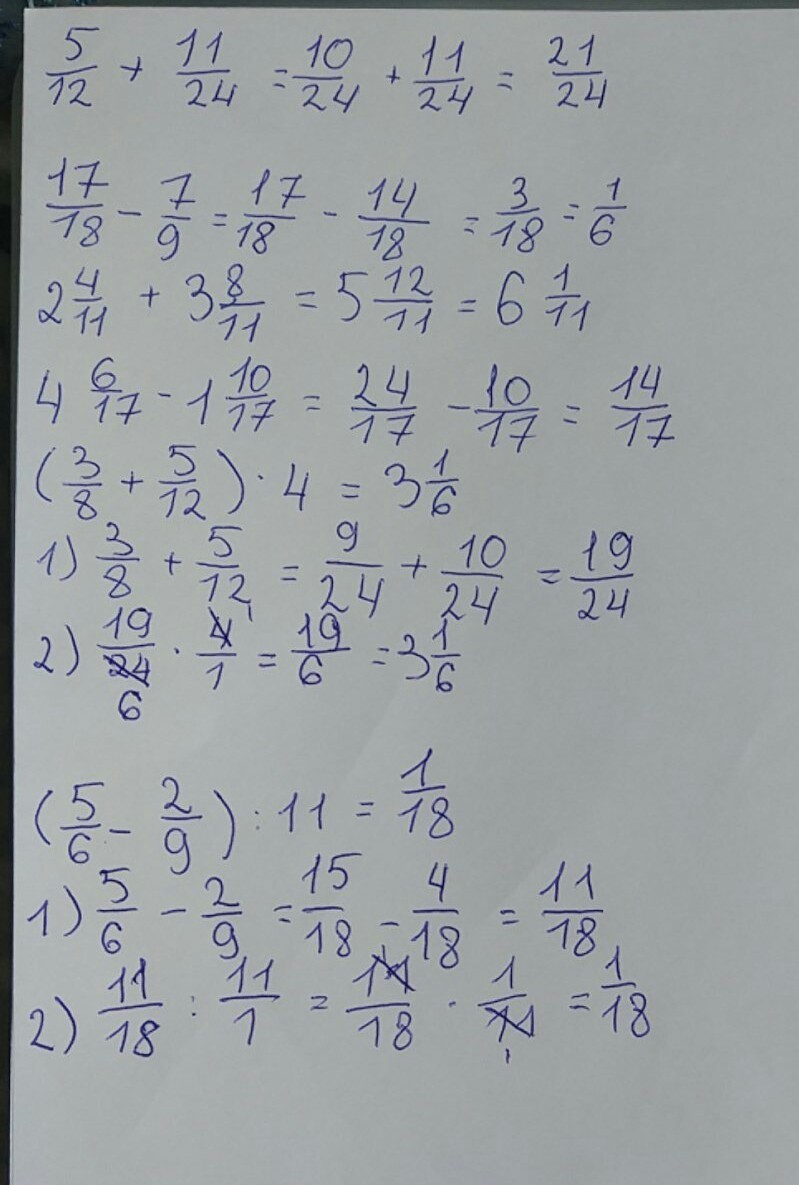 5/12 + 11/24 = 10/24 + 11/24 = 21/24
17/18 - 7/9 = 17/18 - 14/18 = 3/18 = 1/6
2 4/11 + 3 8/11 = 5 12/11 = 6 1/11
4 6/17 - 1 10/17 = 24/17 - 10/17 = 14/17
(3/8 + 5/12) · 4 = 3 1/6
1) 3/8 + 5/12 = 9/24 + 10/24 = 19/24
2) 19/24 6 · 4/1 1 = 19/6 = 3 1/6
(5/6 - 2/9) : 11 = 1/18
1) 5/6 - 2/9 = 15/18 - 4/18 = 11/18
2) 11/18 : 11/1 = 1 11/18 · 1/11 1 = 1/18